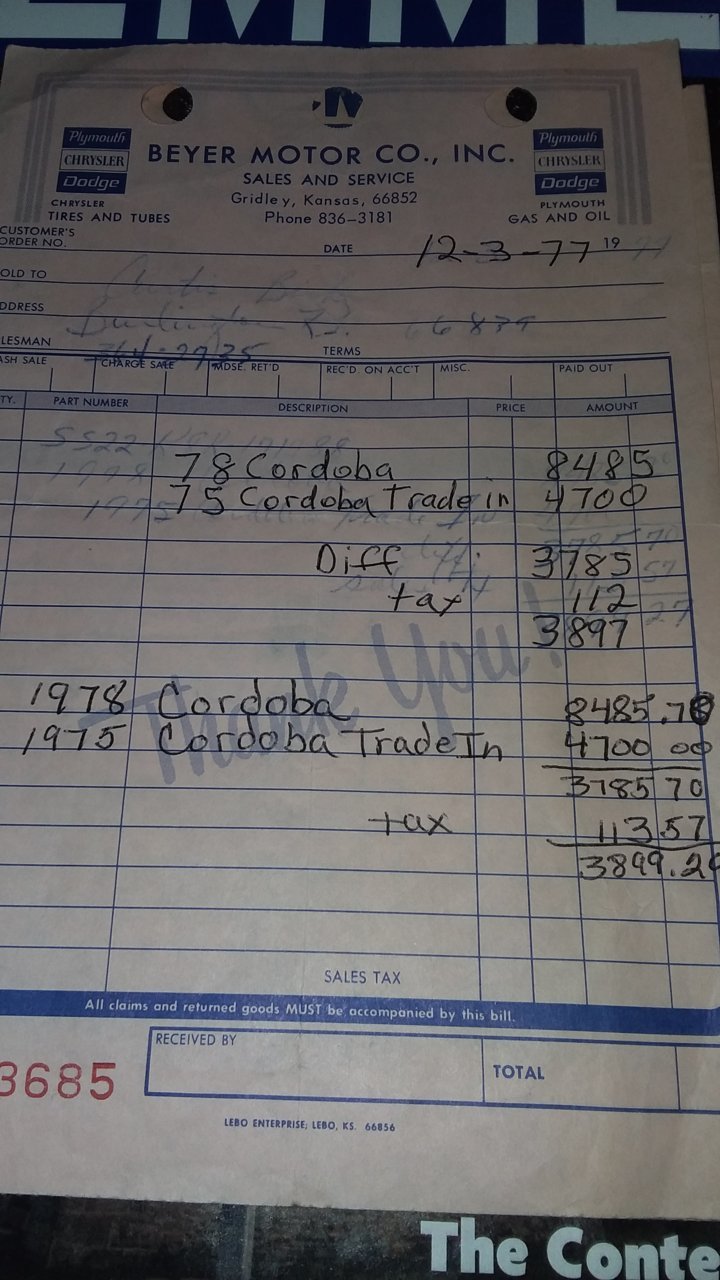 Plymouth
CHRYSLER
Dodge
CHRYSLER
TIRES AND TUBES
BEYER MOTOR CO., INC.
SALES AND SERVICE
Gridley, Kansas, 66852
Phone 836-3181
Plymouth
CHRYSLER
Dodge
PLYMOUTH
GAS AND OIL
CUSTOMER'S
ORDER NO.
DATE 12-3-77 19
OLD TO
DDRESS 66839
LESMAN TERMS
ASH SALE CHARGE SALE MDSE. RET'D REC'D ON ACC'T MISC. PAID OUT
TY. PART NUMBER DESCRIPTION PRICE AMOUNT
78 Cordoba 8485
75 Cordoba Trade in 4700
Diff 3785
tax 112
3897
Thank You!
1978 Cordoba 8485.70
1975 Cordoba Trade In 4700 00
3785 70
tax 113 57
3899.2
SALES TAX
All claims and returned goods MUST be accompanied by this bill.
3685
RECEIVED BY
TOTAL
LEBO ENTERPRISE; LEBO, KS. 66856
The Conte